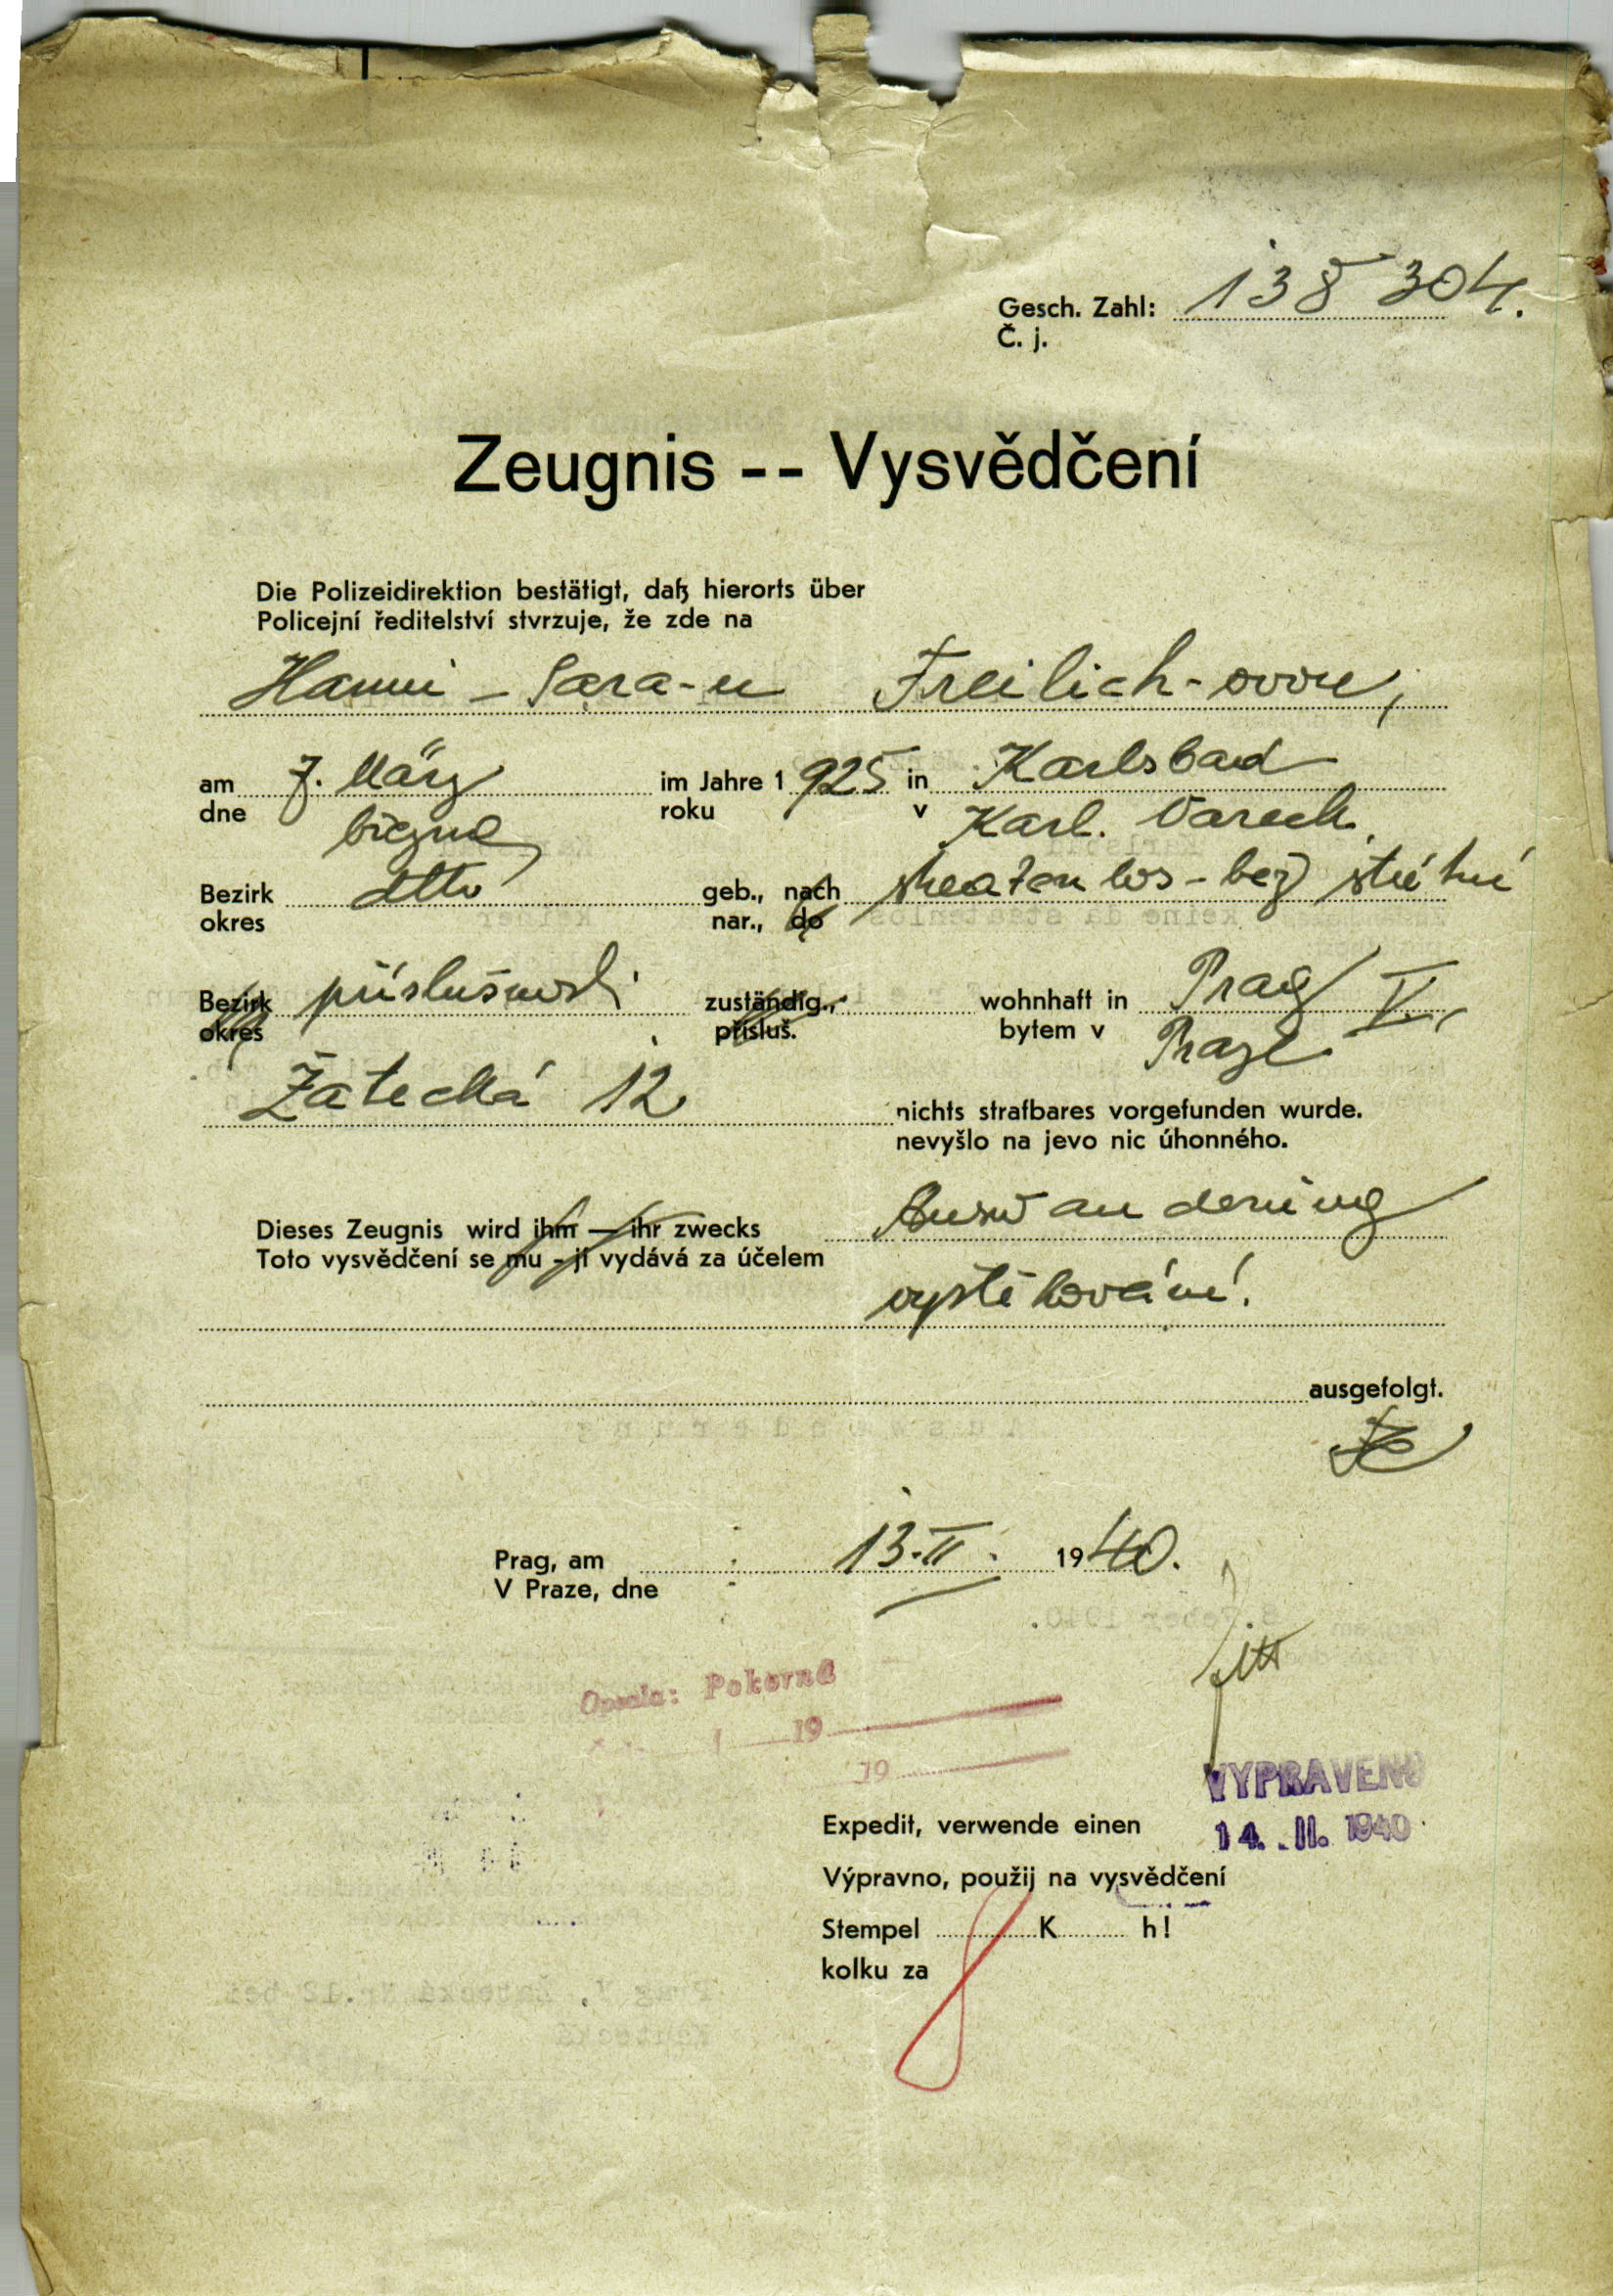 Gesch. Zahl: 138 304.
Č. j.
Zeugnis -- Vysvědčení
Die Polizeidirektion bestätigt, daß hierorts über
Policejní ředitelství stvrzuje, že zde na
Hanni - Sara-u Freilich-ovou,
am 7. März im Jahre 1 925 in Karlsbad
dne března roku v Karl. Varech
Bezirk dtto geb., nach staatenlos - bez státní
okres nar., do
Bezirk příslušnosti zuständig., wohnhaft in Prag V.,
okres přísluš. bytem v Praze
Žatecká 12 nichts strafbares vorgefunden wurde.
nevyšlo na jevo nic úhonného.
Dieses Zeugnis wird ihm — ihr zwecks Auswanderung
Toto vysvědčení se mu - jí vydává za účelem
vystěhování.
ausgefolgt.
Prag, am 13. II. 1940.
V Praze, dne
Opsala: Pokorná
19
19
VYPRAVENO
14. II. 1940
Expedit, verwende einen
Výpravno, použij na vysvědčení
Stempel K h!
kolku za